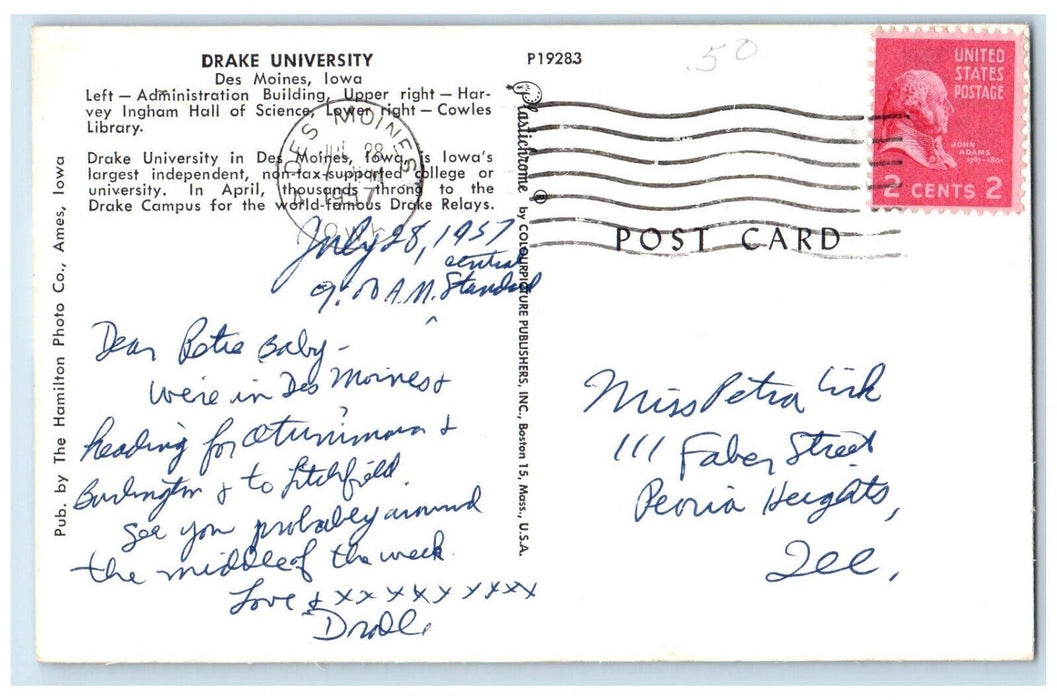 DRAKE UNIVERSITY
Des Moines, Iowa
Left — Administration Building, Upper right — Har-
vey Ingham Hall of Science, Lower right — Cowles
Library.
Drake University in Des Moines, Iowa, is Iowa's
largest independent, non-tax-supported college or
university. In April, thousands throng to the
Drake Campus for the world-famous Drake Relays.
P19283
.50
UNITED
STATES
POSTAGE
JOHN
ADAMS
1797-1801
2 CENTS 2
DES MOINES
JUL 28
1957
IOWA
POST CARD
Pub. by The Hamilton Photo Co., Ames, Iowa
Plastichrome ® by COLOURPICTURE PUBLISHERS, INC., Boston 15, Mass., U.S.A.
July 28, 1957
central
9:00 A.M. Standard
Dear Baby -
We're in Des Moines &
heading for &
Burlington & to Litchfield.
See you probabley around
the middle of the week.
Love & x x x x x x x x x
Miss Petra
111 Faber Street
Peoria Heights,
Ill.